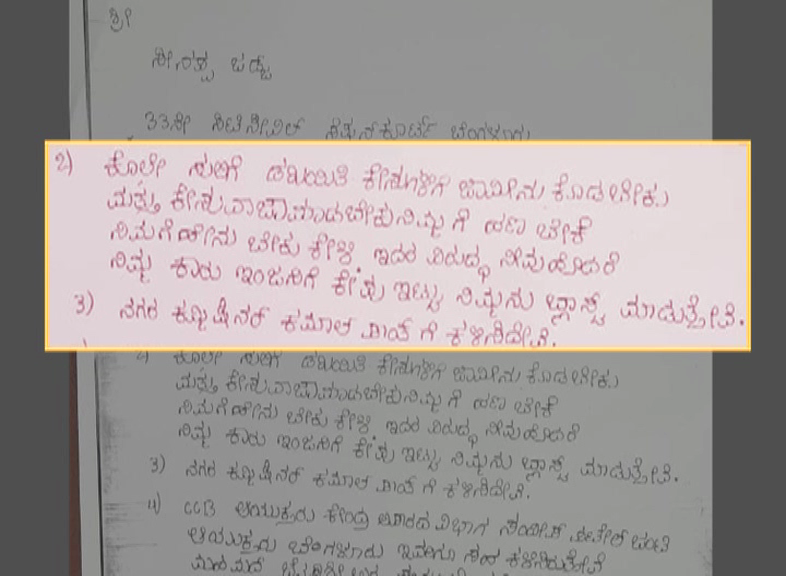 ಶ್ರೀ
ಶೀನಪ್ಪ ಜಡ್ಜ
33ನೇ ಸಿಟಿ ಸೀವಿಲ್ ಸೆಷನ್ ಕೋರ್ಟ್ ಬೆಂಗಳೂರು
2) ಕೊಲೇ ಸುಲಿಗೆ ಡಖಾಯಿತಿ ಕೇಸುಗಳಿಗೆ ಜಾಮೀನು ಕೊಡಬೇಕು
ಮತ್ತು ಕೇಸು ವಾಜಾಮಾಡಬೇಕು ನಿಮ್ಮಗೆ ಹಣ ಬೇಕೆ
ನಿಮಗೆ ಹೇನು ಬೇಕು ಕೇಳಿ ಇದರ ವಿರುದ್ಧ ನೀವು ಹೋದರೆ
ನಿಮ್ಮ ಕಾರು ಇಂಜನಿಗೆ ಕೇಪು ಇಟ್ಟು ನಿಮ್ಮನು ಬ್ಲಾಸ್ಟ್ ಮಾಡುತ್ತೇವೆ.
3) ನಗರ ಕಮ್ಮಿಷಿನರ್ ಕಮಾಲ್ ಪಾಂತ್ ಗೆ ಕಳಿಸಿದೇವೆ.
2) ಕೊಲೇ ಸುಲಿಗೆ ಡಖಾಯಿತಿ ಕೇಸುಗಳಿಗೆ ಜಾಮೀನು ಕೊಡಬೇಕು
ಮತ್ತು ಕೇಸು ವಾಜಾಮಾಡಬೇಕು ನಿಮ್ಮಗೆ ಹಣ ಬೇಕೆ
ನಿಮಗೆ ಹೇನು ಬೇಕು ಕೇಳಿ ಇದರ ವಿರುದ್ಧ ನೀವು ಹೋದರೆ
ನಿಮ್ಮ ಕಾರು ಇಂಜನಿಗೆ ಕೇಪು ಇಟ್ಟು ನಿಮ್ಮನು ಬ್ಲಾಸ್ಟ್ ಮಾಡುತ್ತೇವೆ.
3) ನಗರ ಕಮ್ಮಿಷಿನರ್ ಕಮಾಲ್ ಪಾಂತ್ ಗೆ ಕಳಿಸಿದೇವೆ.
4) CCB ಆಯುಕ್ತರು ಕೇಂದ್ರ ಅಪರಾಧ ವಿಭಾಗ ಸಂದೀಪ್ ಪಾಟೀಲ್ ಜಂಟಿ
ಆಯುಕ್ತರು ಬೆಂಗಳೂರು ಇವರಿಗೂ ಸಹ ಕಳಿಸಿರುತ್ತೇವೆ